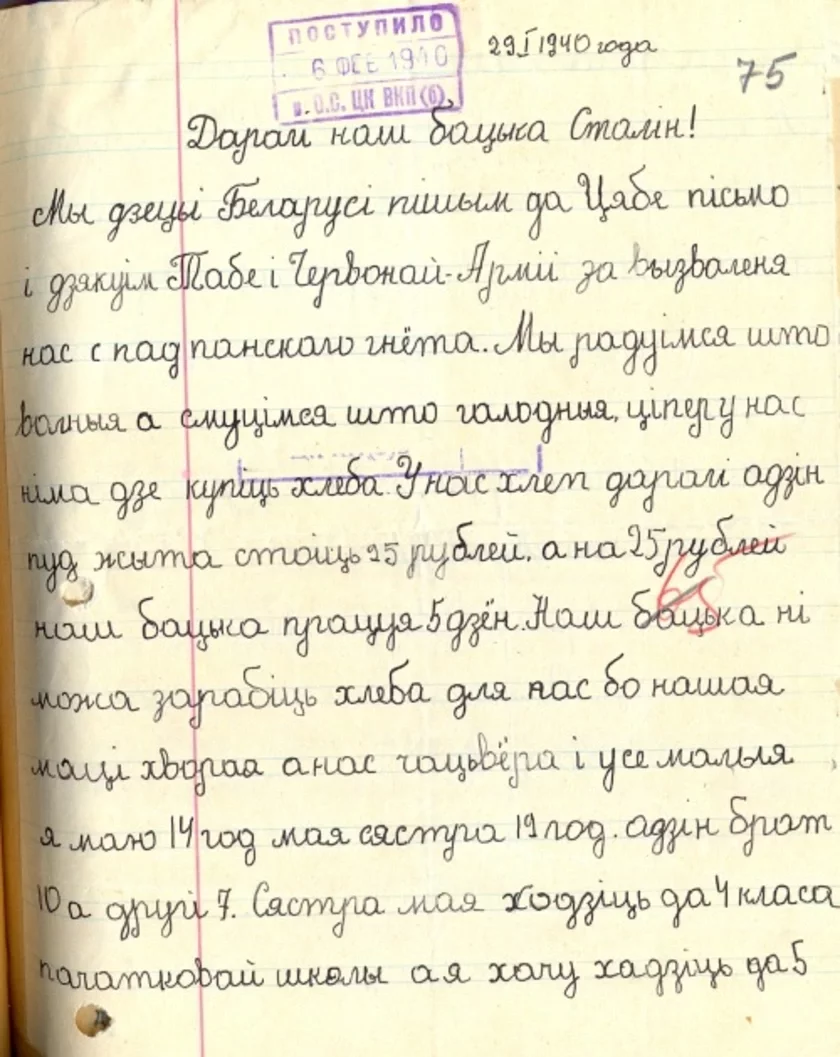 ПОСТУПИЛО
6 ФЕВ 1940
в О.С. ЦК ВКП(б)
29 I 1940 года
75
Дарагі наш бацька Сталін!
Мы дзеці Беларусі пішым да Цябе пісьмо
і дзякуім Табе і Чэрвонай-Арміі за вызваленя
нас с пад панскаго гнёта. Мы радуімся што
волныя а смуцімся што галодныя, ціпер у нас
німа дзе купіць хлеба. У нас хлеп дарагі адзін
пуд жыта стоіць 25 рублей, а на 25 рублей
наш бацька працуя 5 дзён. Наш бацька ні
можа зарабіць хлеба для нас бо нашая
маці хвораа а нас чацьвёра і усе малыя
я маю 14 год мая сястра 19 год. адзін брат
10 а другі 7. Сястра мая ходзіць да 4 класа
пачатковай школы а я хачу хадзіць да 5